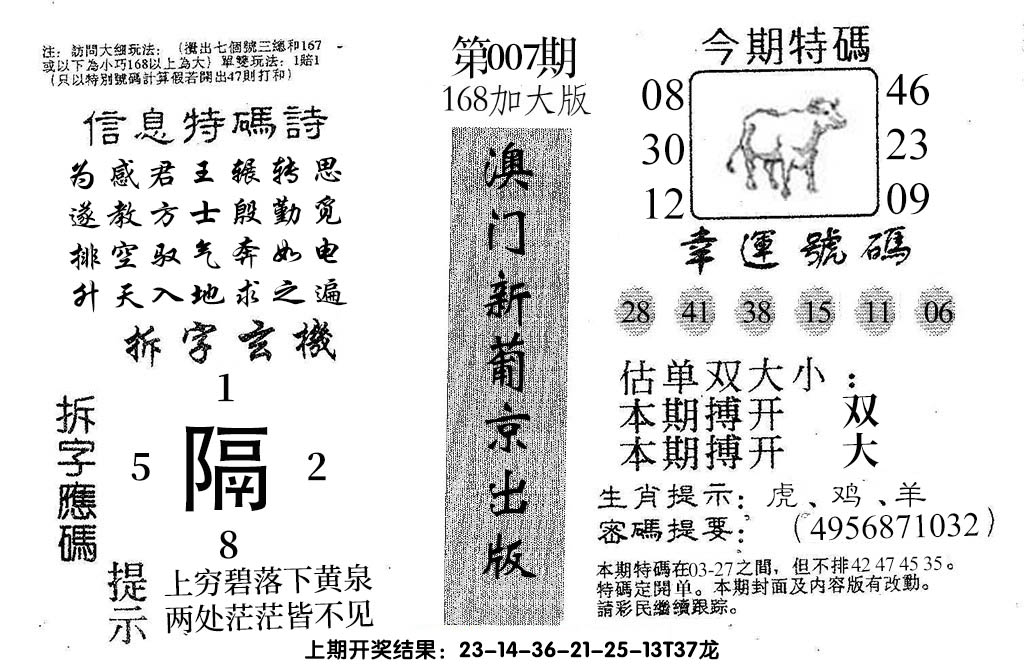 注：訪問大細玩法：（攪出七個號三總和167
或以下為小巧168以上為大）單雙玩法：1賠1
（只以特別號碼計算假若開出47則打和）
信息特碼詩
为感君王辗转思
遂教方士殷勤觅
排空驭气奔如电
升天入地求之遍
拆字玄機
拆字應碼
1
5 隔 2
8
提示
上穷碧落下黄泉
两处茫茫皆不见
第007期
168加大版
澳门新葡京出版
今期特碼
08 46
30 23
12 09
幸運號碼
28 41 38 15 11 06
估单双大小：
本期搏开 双
本期搏开 大
生肖提示：虎、鸡、羊
密碼提要：（4956871032）
本期特碼在03-27之間，但不排42 47 45 35。
特碼定開单。本期封面及内容版有改動。
請彩民繼續跟踪。
上期开奖结果：23-14-36-21-25-13T37龙